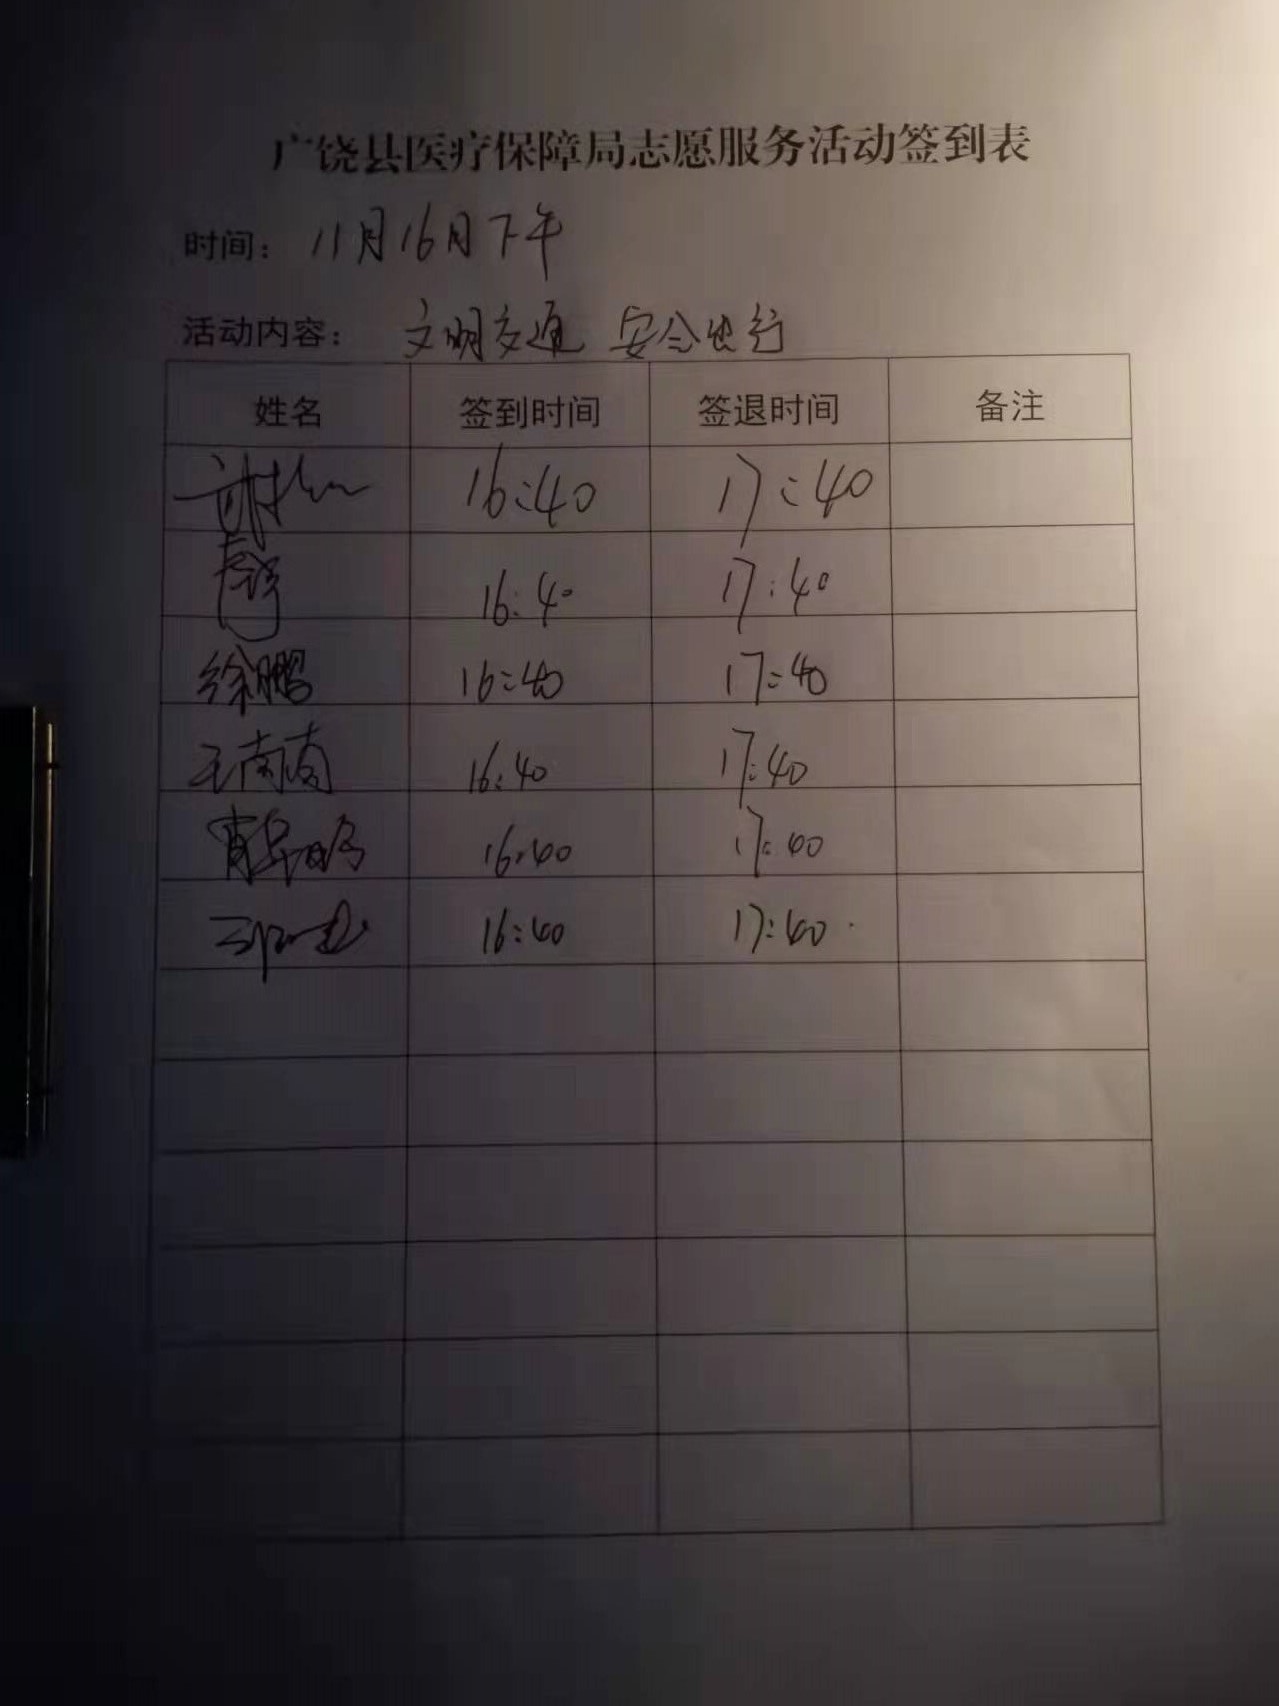 广饶县医疗保障局志愿服务活动签到表
时间： 11月16日下午
活动内容： 文明交通 安全出行
姓名 签到时间 签退时间 备注
16:40 17:40
16:40 17:40
徐鹏 16:40 17:40
王南南 16:40 17:40
16:40 17:40
16:40 17:40